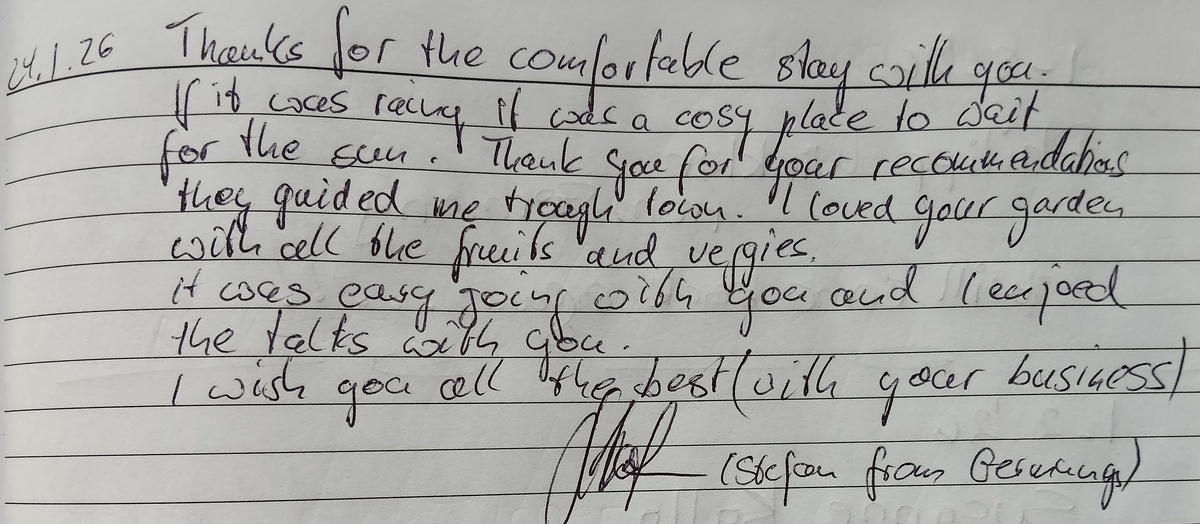 24.1.26 Thanks for the comfortable stay with you.
If it was raing it was a cosy place to wait
for the sun. Thank you for your recommendations
they guided me trough town. I loved your garden
with all the fruits and veggies.
it was easy going with you and I enjoed
the talks with you.
I wish you all the best (with your business)
(Stefan from Germany)